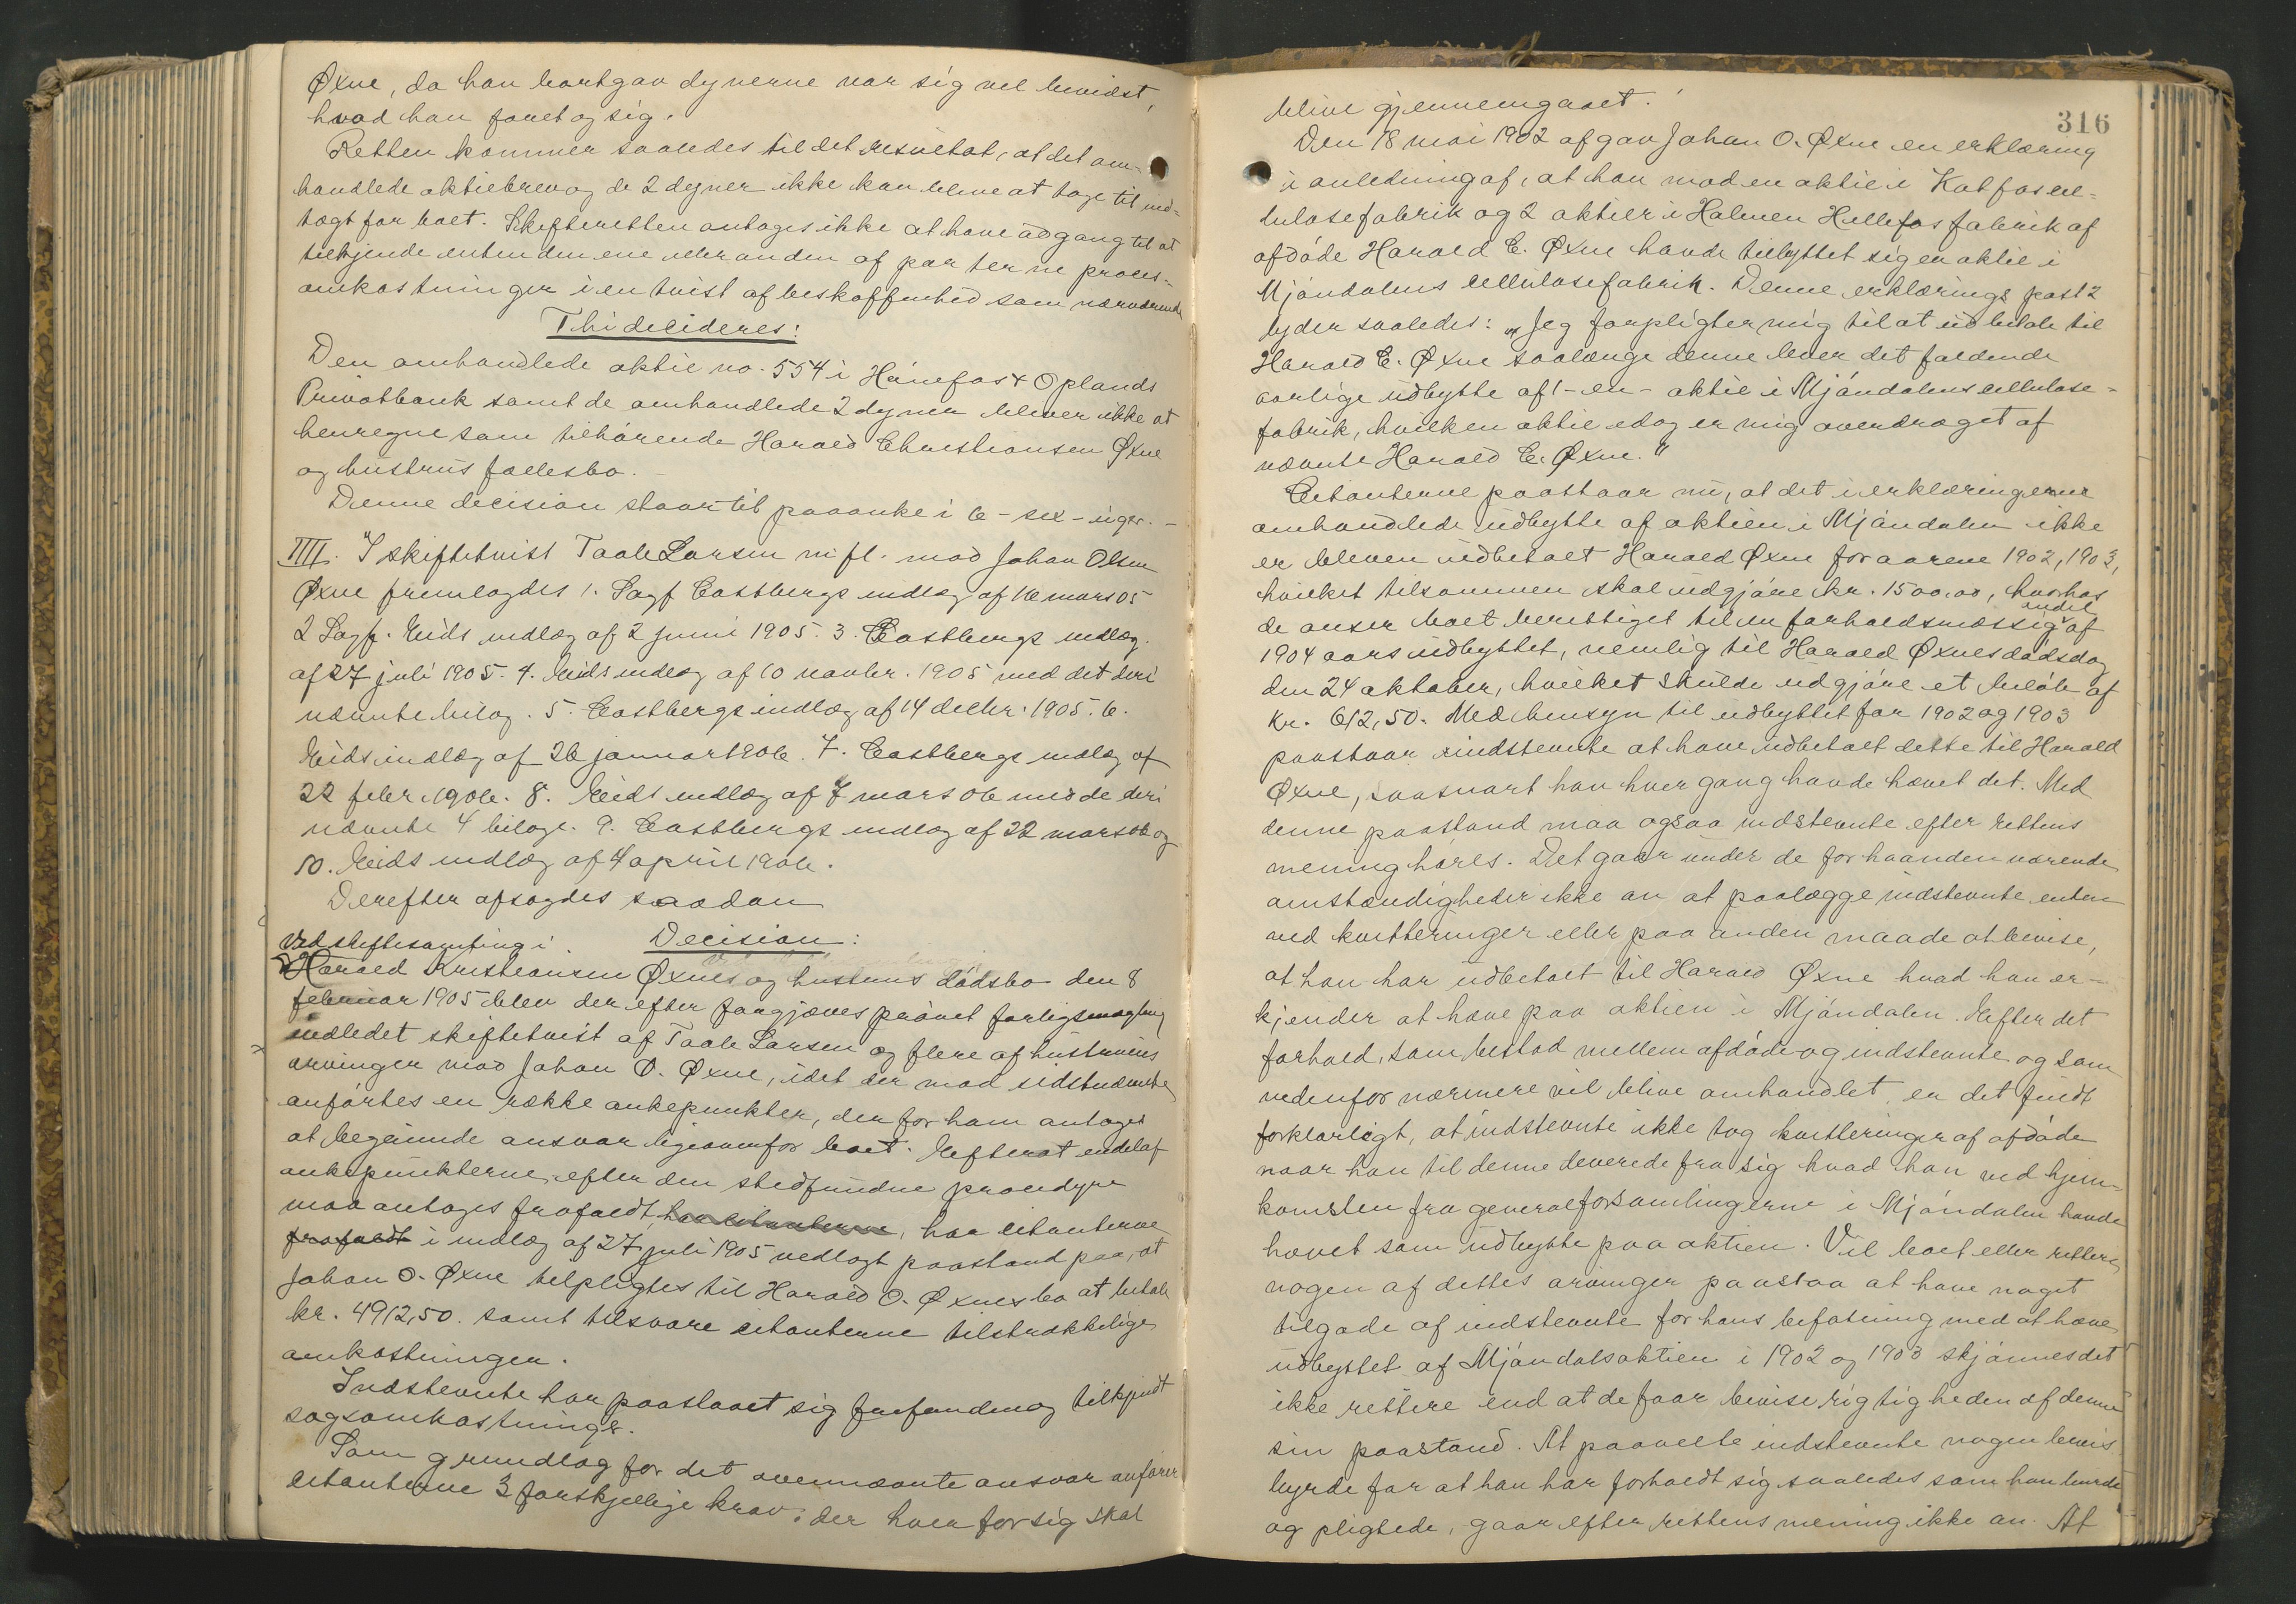 Øxne, da han bortgav dynerne var sig vel bevidst,
hvad han foretog sig.
Retten kommer saaledes til det resultat, at det om-
handlede aktiebrev og de 2 dyner ikke kan blive at tage til ind-
tægt for boet. Skifteretten antages ikke at have adgang til at
tilkjende enten den ene eller anden af parterne proces-
omkostninger i en tvist af beskaffenhed som nærværende
Thi decideres:
Den omhandlede aktie no. 554 i Hønefos & Oplands
Privatbank samt de omhandlede 2 dyner bliver ikke at
henregne som tilhørende Harald Christiansen Øxne
og hustrus fællesbo.
Denne decision staar til paaanke i 6 - sex - uger. -
IIII. I skiftetvist Taale Larsen m fl. mod Johan Olsen
Øxne fremlagdes 1. Sagf Castbergs indlæg af 16 mars 05
2 Sagf. Eids indlæg af 2 juni 1905. 3. Castbergs indlæg
af 27 juli 1905. 4. Eids indlæg af 10 novbr. 1905 med det deri
nævnte bilag. 5. Castbergs indlæg af 14 decbr. 1905. 6.
Eids indlæg af 26 januar 1906. 7. Castbergs indlæg af
22 febr 1906. 8. Eids indlæg af 7 mars 06 med de deri
nævnte 4 bilage. 9. Castbergs indlæg af 22 mars 06 og
10. Eids indlæg af 4 april 1906.
Derefter afsagdes saadan
Ved skiftesamling i Decision:
Harald Kristiansen Øxnes og hustrus dødsbo den 8
februar 1905 blev der efter forgjæves prøvet forligsmægling
indledet skiftetvist af Taale Larsen og flere af hustruens
arvinger mod Johan O. Øxne, idet der mod sidstnævnte
anførtes en række ankepunkter, der for ham antoges
at begrunde ansvar ligeoverfor boet. Efterat endel af
ankepunkterne efter den stedfundne procedyre
maa antages frafaldt har citanterne, har citanterne
frafaldt i indlæg af 27 juli 1905 nedlagt paastand paa, at
Johan O. Øxne tilpligtes til Harald O. Øxnes bo at betale
kr. 4912,50. samt tilsvare citanterne tilstrækkelige
omkostninger.
Indstevnte har paastaaet sig frifunden og tilkjendt
sagsomkostninger.
Som grundlag for det ovennævnte ansvar anfører
citanterne 3 forskjellige krav, der hver for sig skal
316
blive gjennemgaaet.
Den 18 mai 1902 afgav Johan O. Øxne en erklæring
i anledning af, at han mod en aktie i Katfos cel-
lulosefabrik og 2 aktier i Holmen Hellefos fabrik af
afdøde Harald C. Øxne havde tilbyttet sig en aktie i
Mjøndalens cellulosefabrik. Denne erklærings post 2
lyder saaledes: "Jeg forpligter mig til at udbetale til
Harald C. Øxne saalænge denne lever det faldende
aarlige udbytte af 1 - en - aktie i Mjøndalens cellulose-
fabrik, hvilken aktie idag er mig overdraget af
nævnte Harald C. Øxne."
Citanterne paastaar nu, at det i erklæringerne
omhandlede udbytte af aktien i Mjøndalen ikke
er bleven udbetalt Harald Øxne for aarene 1902, 1903,
hvilket tilsammen skal udgjøre kr. 1500.00, hvorhos
de anser boet berettiget til en forholdsmæssig andel af
1904 aars udbyttet, nemlig til Harald Øxnes dødsdag
den 24 oktober, hvilket skulde udgjøre et beløb af
Kr. 612,50. Med hensyn til udbyttet for 1902 og 1903
paastaar indstevnte at have udbetalt dette til Harald
Øxne, saasnart han hver gang havde hævet det. Med
denne paastand maa ogsaa indstevnte efter rettens
mening høres. Det gaar under de forhaandenværende
omstændigheder ikke an at paalægge indstevnte enten
ved kvitteringer eller paa anden maade at bevise,
at han har udbetalt til Harald Øxne hvad han er-
kjender at hæve paa aktien i Mjøndalen. Efter det
forhold, som bestod mellem afdøde og indstevnte og som
nedenfor nærmere vil blive omhandlet, er det fuldt
forklarligt, at indstevnte ikke tog kvitteringer af afdøde
naar han til denne leverede fra sig hvad han ved hjem-
komsten fra generalforsamlingerne i Mjøndalen havde
hævet som udbytte paa aktien. Vil boet eller rettere
nogen af dettes arvinger paastaa at have noget
tilgode af indstevnte for hans befatning med at hæve
udbyttet af Mjøndalsaktien i 1902 og 1903 skjønnes det
ikke rettere end at de faar bevise rigtigheden af denne
sin paastand. At paavelte indstevnte nogen bevis
byrde for at han har forholdt sig saaledes som han burde
og pligtede, gaar efter rettens mening ikke an. At